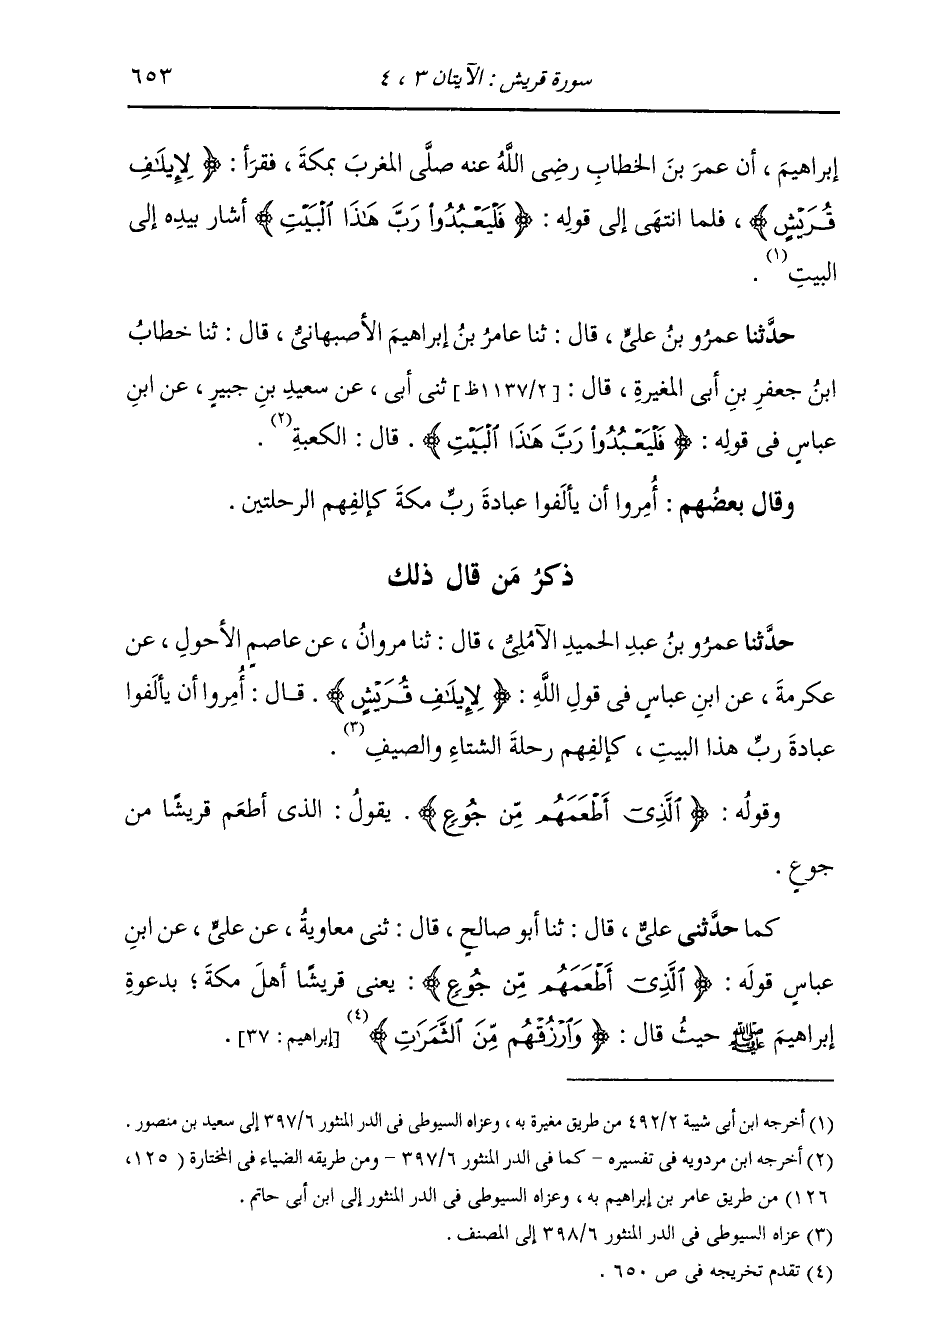 سورة قريش : الآيتان ٣ ، ٤
٦٥٣
إبراهيمَ ، أن عمرَ بنَ الخطابِ رضِى اللَّهُ عنه صلَّى المغربَ بمكةَ ، فقرَأ : ﴿ لِإِيلَٰفِ
قُرَيْشٍ ﴾ ، فلما انتهَى إلى قولِه : ﴿ فَلْيَعْبُدُوا۟ رَبَّ هَٰذَا ٱلْبَيْتِ ﴾ أشار بيدِه إلى
البيتِ(١) .
حدَّثنا عمرُو بنُ علىٍّ ، قال : ثنا عامرُ بنُ إبراهيمَ الأصبهانىُّ ، قال : ثنا خطابُ
ابنُ جعفرِ بنِ أبى المغيرةِ ، قال : [١١٣٧/٢ظ] ثنى أبى ، عن سعيدِ بنِ جبيرٍ ، عن ابنِ
عباسٍ فى قولِه : ﴿ فَلْيَعْبُدُوا۟ رَبَّ هَٰذَا ٱلْبَيْتِ ﴾ . قال : الكعبةِ(٢) .
وقال بعضُهم : أُمِروا أن يألَفوا عبادةَ ربِّ مكةَ كإلفِهم الرحلتين .
ذكرُ مَن قال ذلك
حدَّثنا عمرُو بنُ عبدِ الحميدِ الآمُلِىُّ ، قال : ثنا مروانُ ، عن عاصمٍ الأحولِ ، عن
عكرمةَ ، عن ابنِ عباسٍ فى قولِ اللَّهِ : ﴿ لِإِيلَٰفِ قُرَيْشٍ ﴾ . قال : أُمِروا أن يألَفوا
عبادةَ ربِّ هذا البيتِ ، كإلفِهم رحلةَ الشتاءِ والصيفِ(٣) .
وقولُه : ﴿ ٱلَّذِىٓ أَطْعَمَهُم مِّن جُوعٍ ﴾ . يقولُ : الذى أطعَم قريشًا من
جوعٍ .
كما حدَّثنى علىٌّ ، قال : ثنا أبو صالحٍ ، قال : ثنى معاويةُ ، عن علىٍّ ، عن ابنِ
عباسٍ قولَه : ﴿ ٱلَّذِىٓ أَطْعَمَهُم مِّن جُوعٍ ﴾ : يعنى قريشًا أهلَ مكةَ ؛ بدعوةِ
إبراهيمَ ﷺ حيثُ قال : ﴿ وَٱرْزُقْهُم مِّنَ ٱلثَّمَرَٰتِ ﴾(٤) [إبراهيم : ٣٧] .
(١) أخرجه ابن أبى شيبة ٤٩٢/٢ من طريق مغيرة به ، وعزاه السيوطى فى الدر المنثور ٣٩٧/٦ إلى سعيد بن منصور .
(٢) أخرجه ابن مردويه فى تفسيره - كما فى الدر المنثور ٣٩٧/٦ - ومن طريقه الضياء فى المختارة ( ١٢٥،
١٢٦) من طريق عامر بن إبراهيم به ، وعزاه السيوطى فى الدر المنثور إلى ابن أبى حاتم .
(٣) عزاه السيوطى فى الدر المنثور ٣٩٨/٦ إلى المصنف .
(٤) تقدم تخريجه فى ص ٦٥٠ .